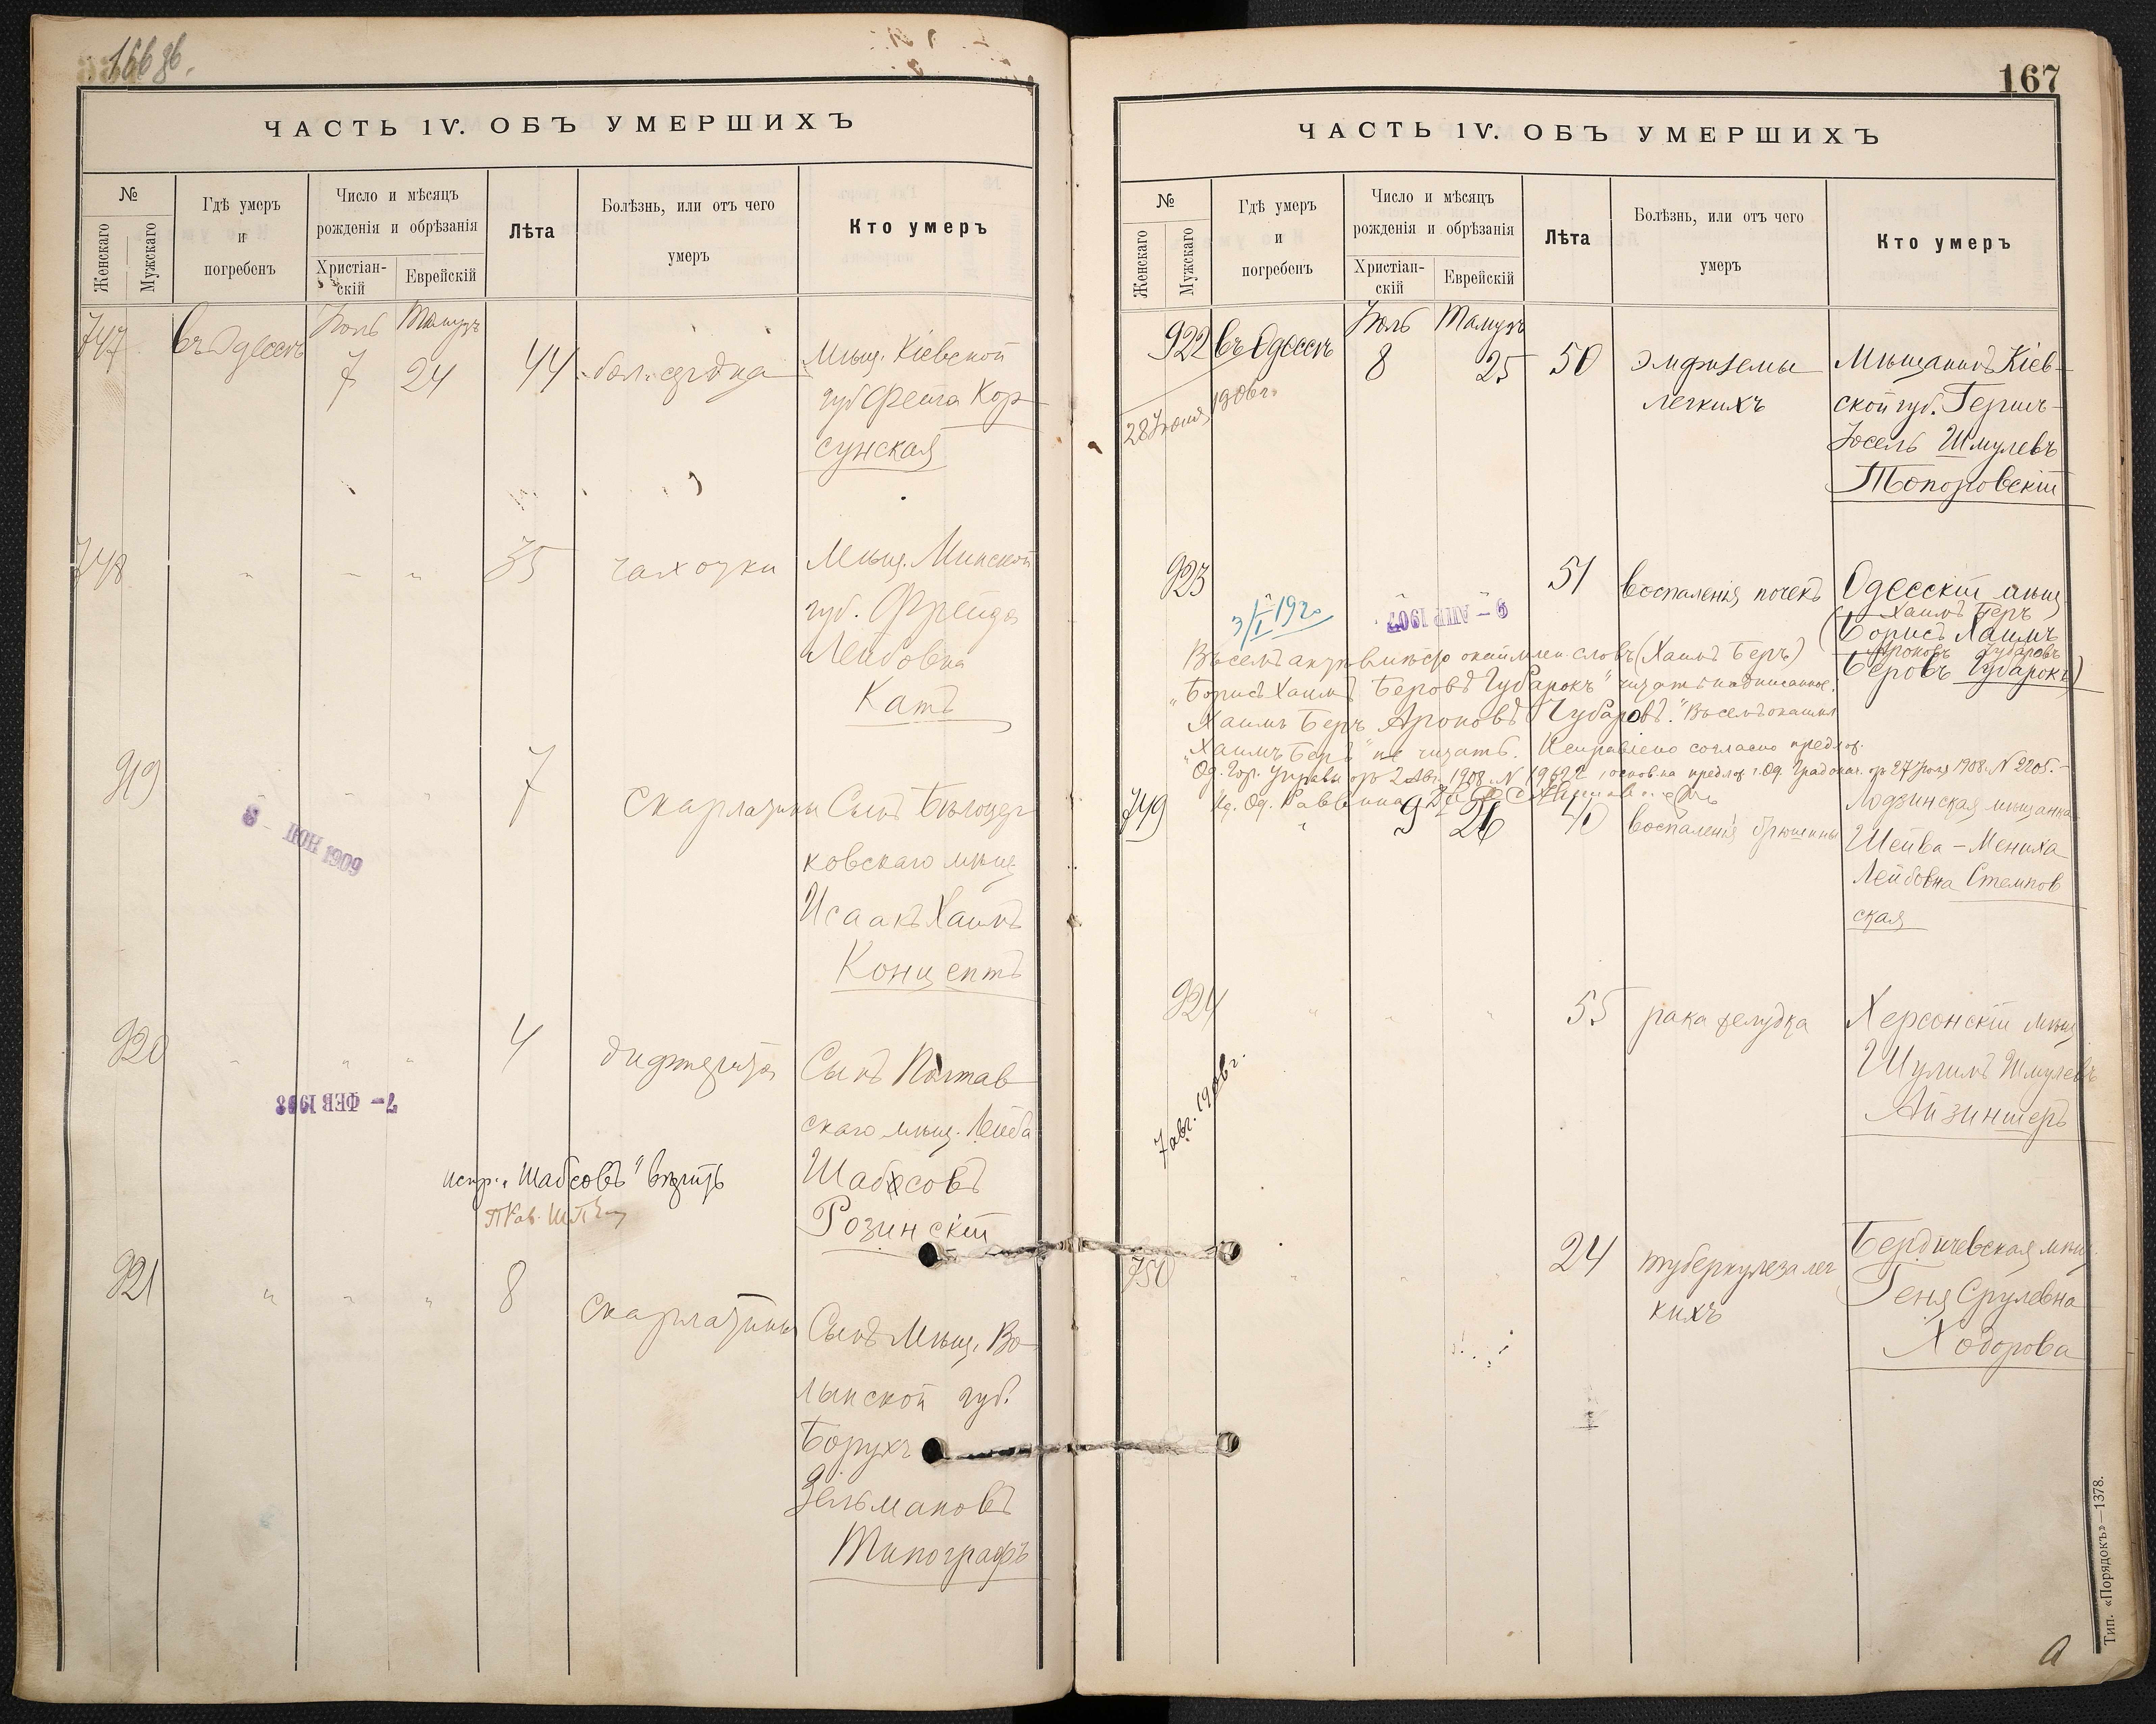 166 об.
ЧАСТЬ IV. ОБЪ УМЕРШИХЪ
№
Женскаго
Мужскаго
Гдѣ умеръ
и
погребенъ
Число и мѣсяцъ
рожденія и обрѣзанія
Христіан-
скій
Еврейскій
Лѣта
Болѣзнь, или отъ чего
умеръ
Кто умеръ
747 въ Одессѣ Іюль 7 Тамузъ 24 44 бол. сердца Мѣщ. Кіевской
губ. Фейга Кор-
сунская
748 " " " 35 чахотки Мѣщ. Минской
губ. Фрейда
Лейбовна
Катъ
919 " " " 7 скарлатины Сынъ Бѣлоцер-
ковскаго мѣщ.
Исаакъ Хаимъ
Концептъ
8 - ІЮН 1909
920 " " " 4 дифтерита Сынъ Полтав-
скаго мѣщ. Лейба
Шабсовъ
Розинскій
7 - ФЕВ 1908
испр. "Шабсовъ" вѣрить
921 " " " 8 скарлатины Сынъ Мѣщ. Во-
лынской губ.
Борухъ
Зельмановъ
Типографъ
167
ЧАСТЬ IV. ОБЪ УМЕРШИХЪ
№
Женскаго
Мужскаго
Гдѣ умеръ
и
погребенъ
Число и мѣсяцъ
рожденія и обрѣзанія
Христіан-
скій
Еврейскій
Лѣта
Болѣзнь, или отъ чего
умеръ
Кто умеръ
922 въ Одессѣ Іюль 8 Тамузъ 25 50 эмфиземы Мѣщанинъ Кіев-
легкихъ ской губ. Гершъ-
Іосель Шмулевъ
Топоровскій
28 Іюня 1906 г.
923 " " 51 воспаленія почекъ Одесскій мѣщ.
Хаимъ Беръ
(Борисъ Хаимъ
Ароновъ Чубаровъ
Беровъ Чубарокъ)
3/I 1920
9 - АПР 1907
Въ семъ актѣ вмѣсто окаймлен. словъ (Хаимъ Беръ)
"Борисъ Хаимъ Беровъ Чубарокъ" читать надписанное:
Хаимъ Беръ Ароновъ Чубаровъ." Въ семъ окаймл.
"Хаимъ Беръ" не читать. Исправлено согласно предлож.
Од. Гор. Управы отъ 2 Авг. 1908 № 19622, основ. на предлож. г. Од. Градонач. отъ 27 Іюля 1908. № 2205.
И. д. Од. Раввина
749 " 9 26 40 воспаленія брюшины Лодзинская мѣщанка
Шейва-Мениха
Лейбовна Стемпов
ская
924 " " " 55 рака желудка Херсонскій мѣщ.
Шулимъ Шмулевъ
Айзиншеръ
7 авг. 1906 г.
750 " " " 24 туберкулеза лег Бердичевская мѣщ.
кихъ Геня Срулевна
Ходорова
Тип. «Порядокъ»—1378.